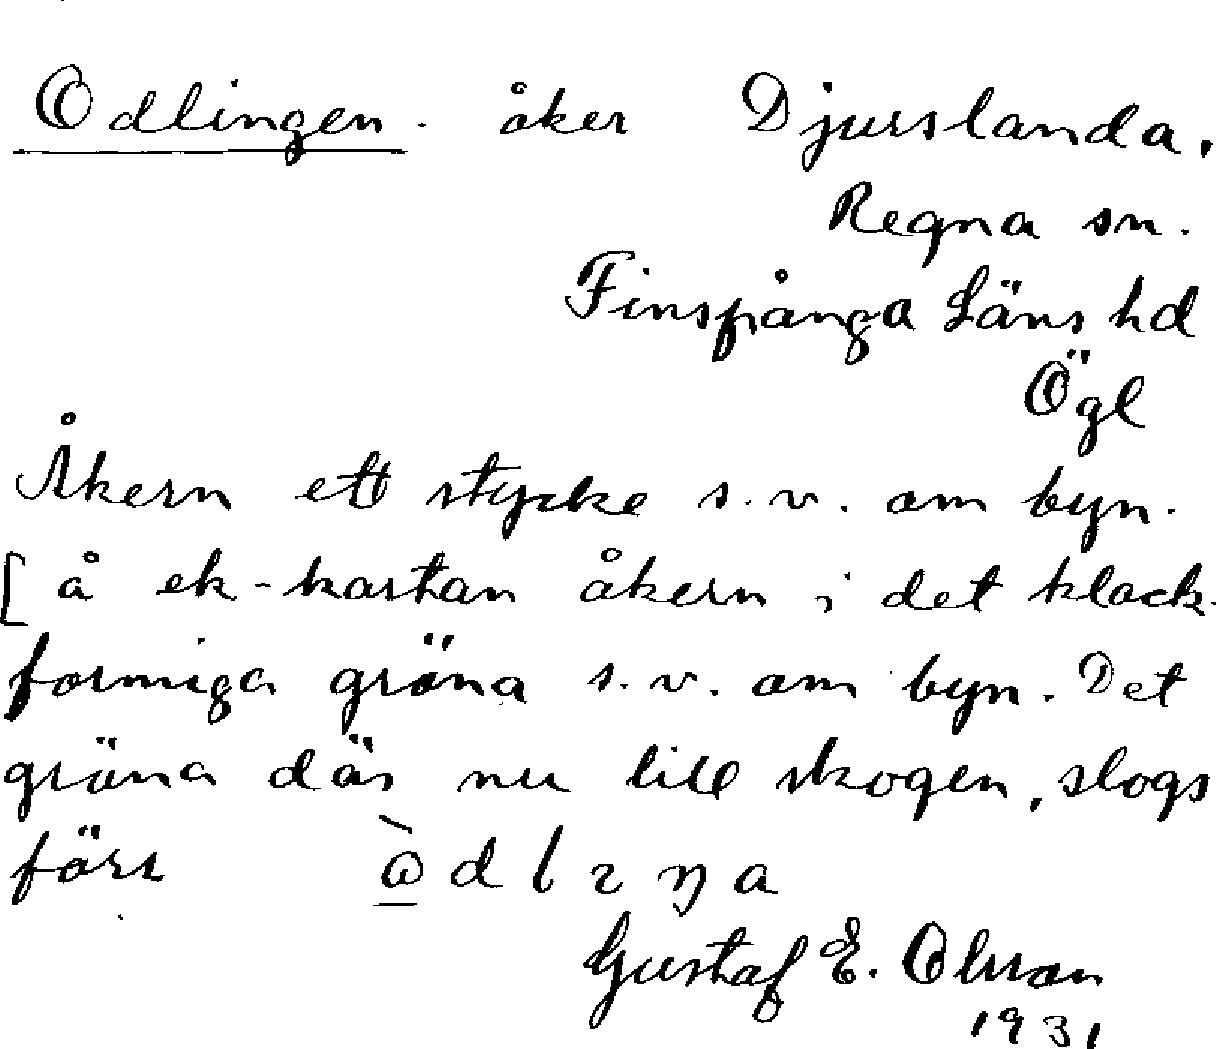 Odlingen. åker Djurslanda,
Regna sn.
Finspånga Läns hd
Ögl
Åkern ett stycke s.v. om byn.
[å ek-kartan åkern i det klack-
formiga gröna s.v. om byn. Det
gröna där nu lill skogen, slogs
förr
Gustaf E. Olsson
1931